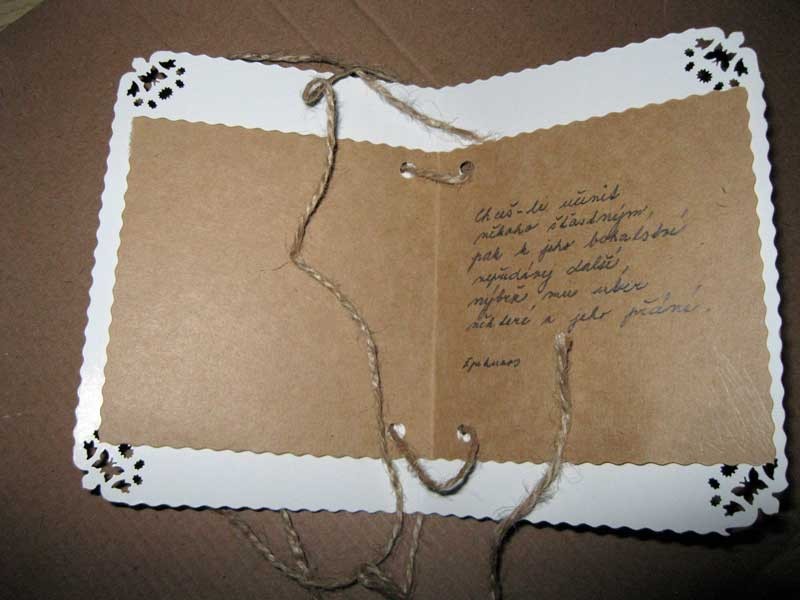 Chceš-li učinit
někoho šťastným,
pak k jeho bohatství
nepřidávej další,
nýbrž mu uber
některé z jeho přání.
Epikuros